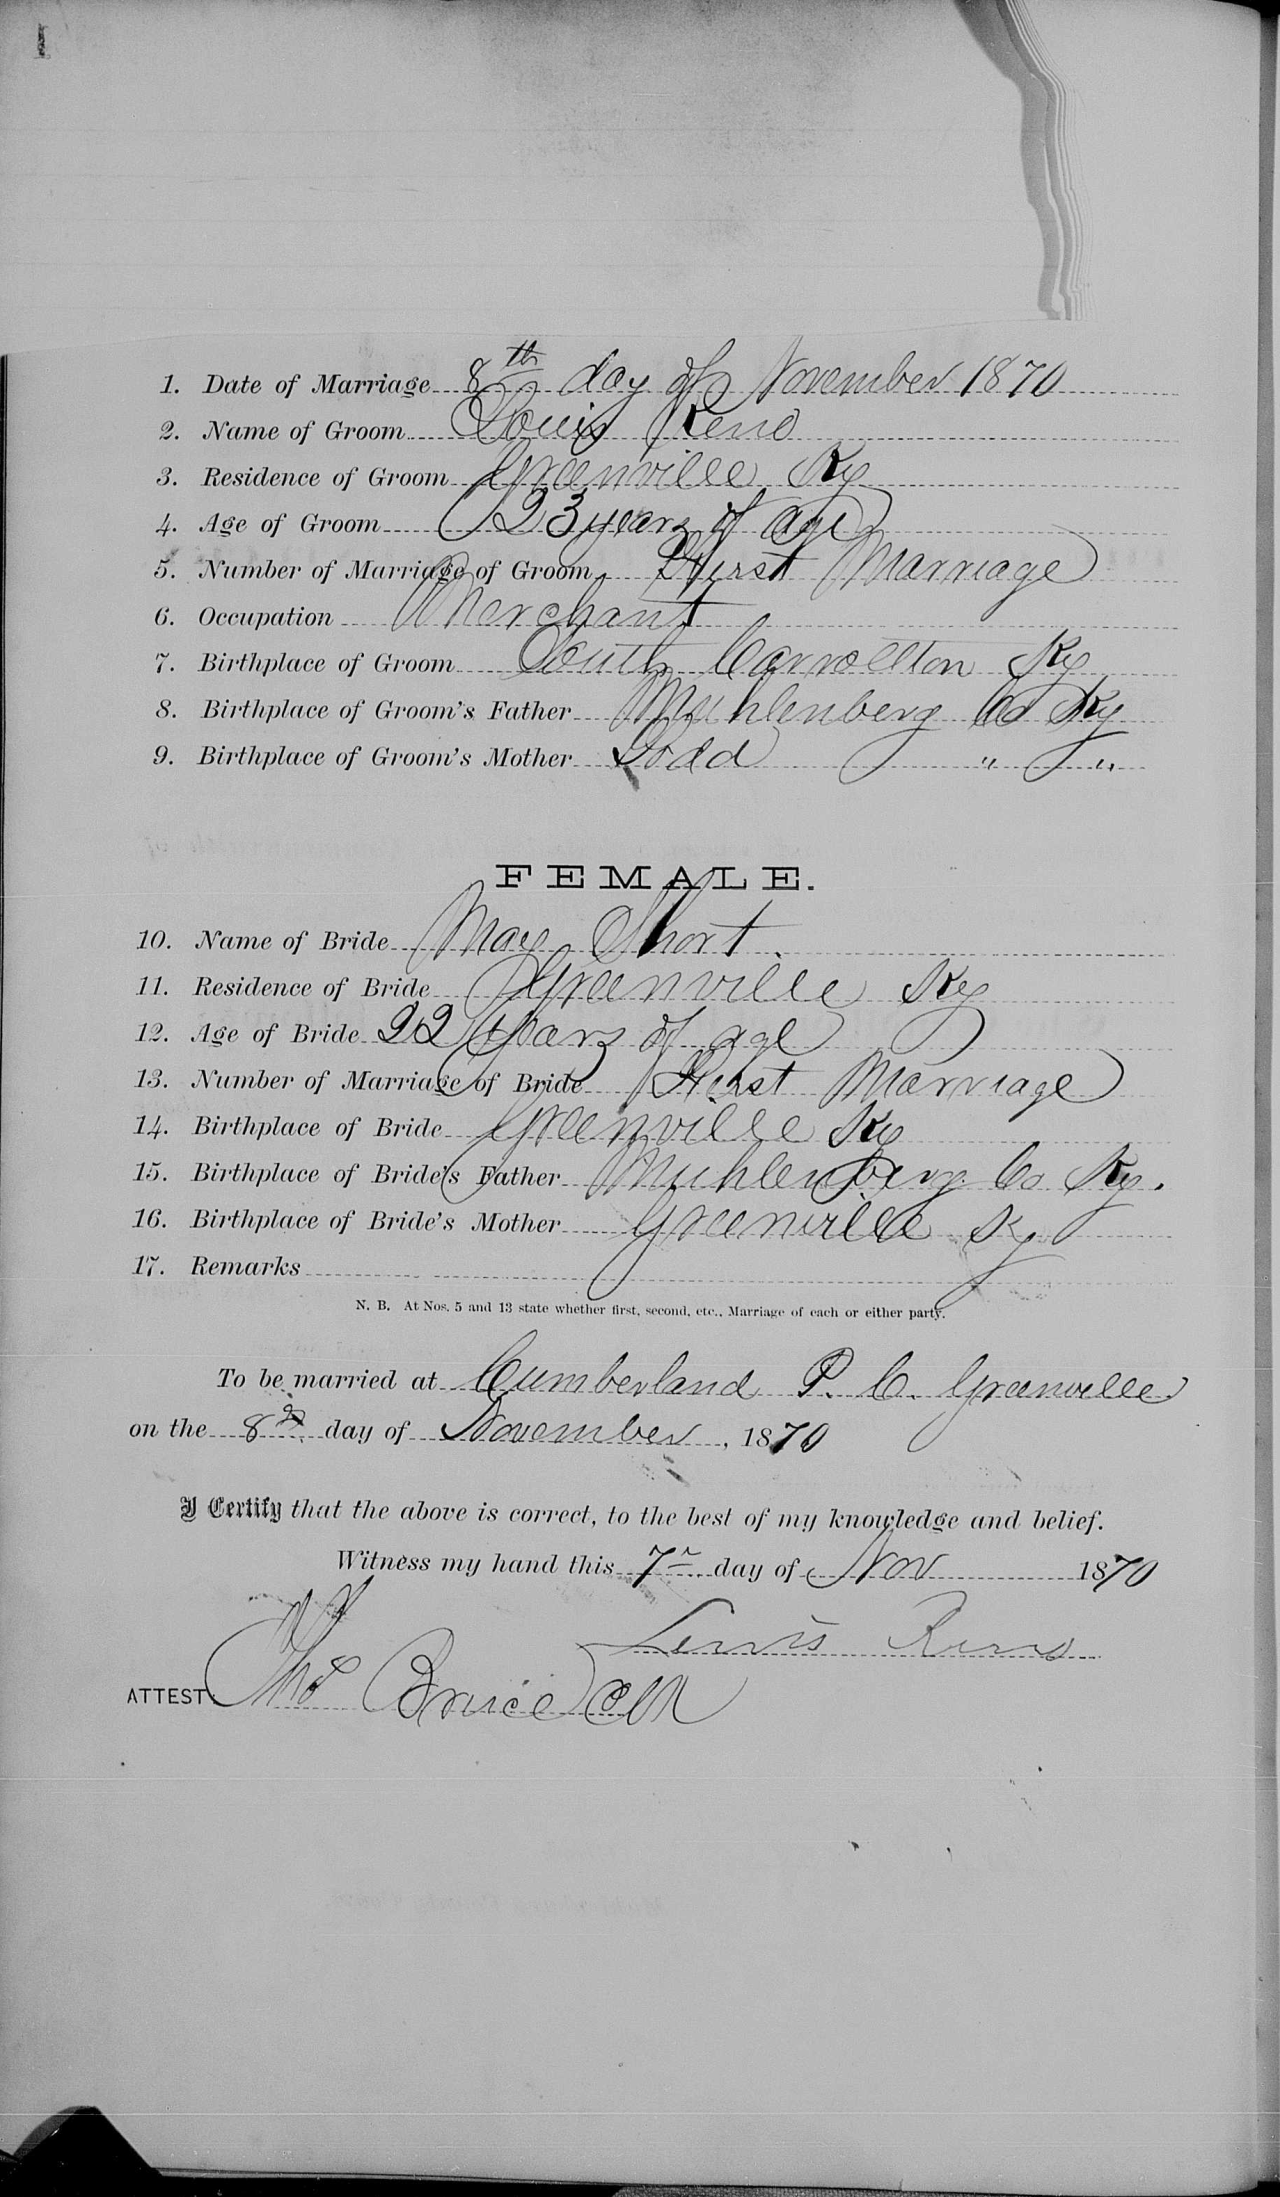 1. Date of Marriage 8th day of November 1870
2. Name of Groom Louis Reno
3. Residence of Groom Greenville Ky
4. Age of Groom 23 years of age
5. Number of Marriage of Groom First Marriage
6. Occupation Merchant
7. Birthplace of Groom South Carrollton Ky
8. Birthplace of Groom's Father Muhlenberg Co Ky
9. Birthplace of Groom's Mother Todd " "
FEMALE.
10. Name of Bride Mary Short.
11. Residence of Bride Greenville Ky
12. Age of Bride 22 years of age
13. Number of Marriage of Bride First Marriage
14. Birthplace of Bride Greenville Ky
15. Birthplace of Bride's Father Muhlenberg Co Ky.
16. Birthplace of Bride's Mother Greenville Ky
17. Remarks
N. B. At Nos. 5 and 13 state whether first, second, etc., Marriage of each or either party.
To be married at Cumberland P. C. Greenville
on the 8th day of November, 1870
I Certify that the above is correct, to the best of my knowledge and belief.
Witness my hand this 7 day of Nov 1870
Lewis Reno
ATTEST Thos Bruce Clk